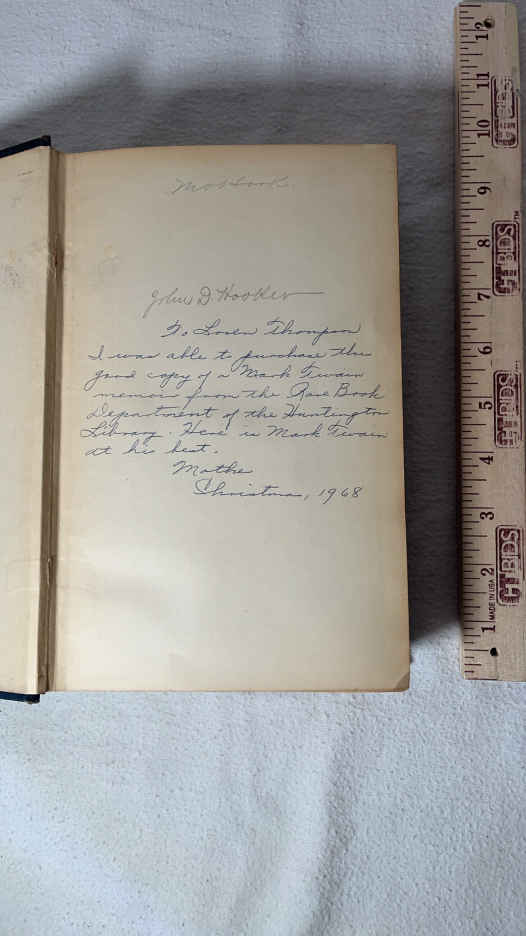 John D. Hooker
To Loren Thompson
I was able to purchase this
good copy of a Mark Twain
memoir from the Rare Book
Department of the Huntington
Library. Here is Mark Twain
at his best.
Mother
Christmas, 1968
12
11
10
9
8
7
6
5
4
3
2
1
MADE IN USA